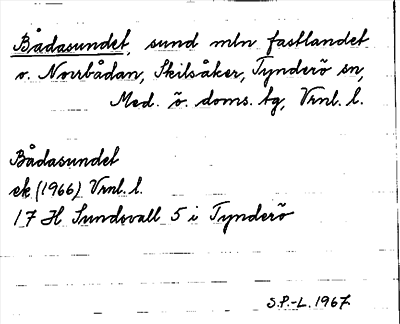 Bådasundet, sund mln fastlandet
o. Norrbådan, Skilsåker, Tynderö sn,
Med. ö. doms. tg, Vrnl. l.
Bådasundet
ek (1966) Vrnl. l.
17 H Sundsvall 5 i Tynderö
S.P.-L. 1967